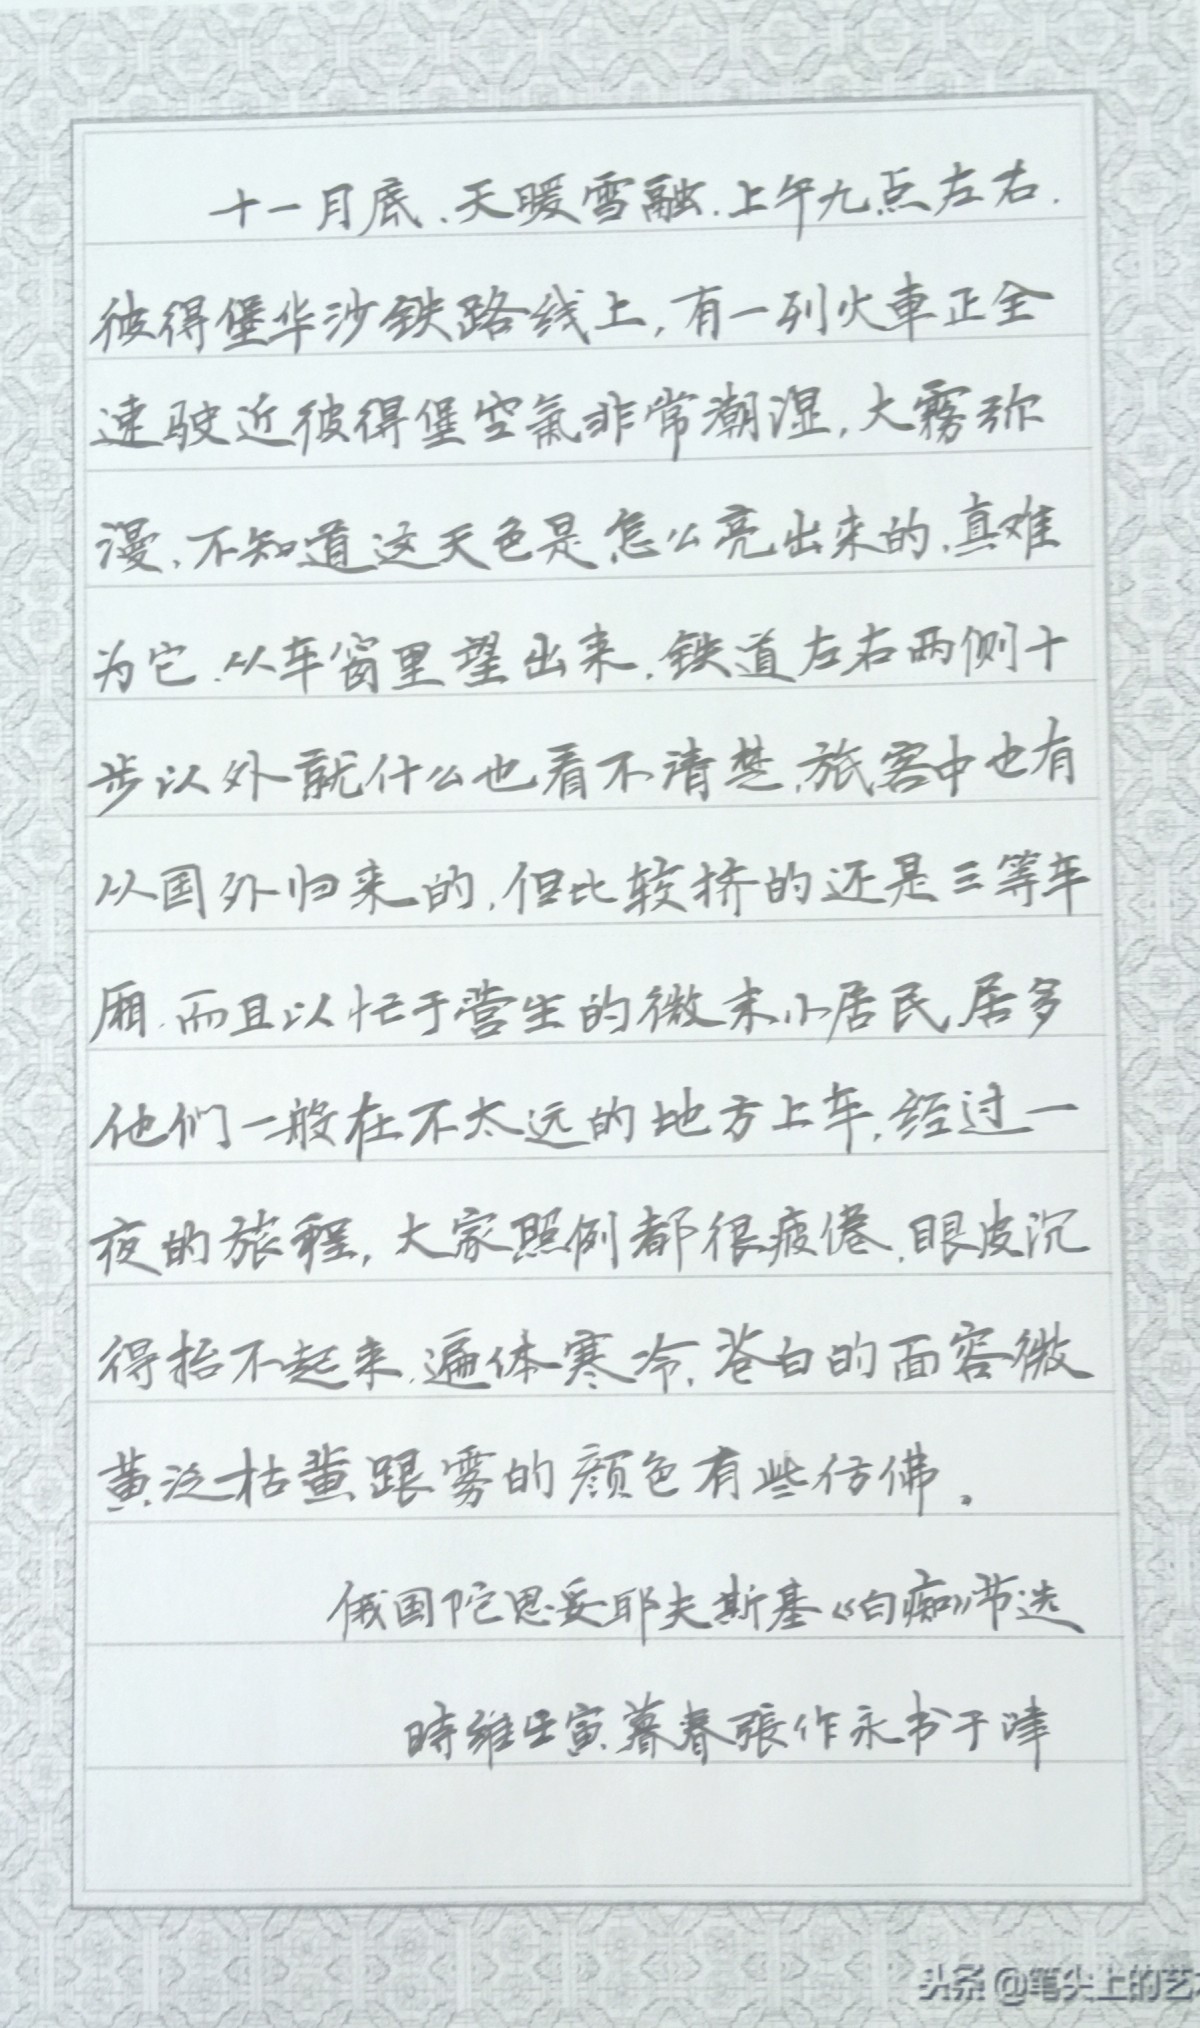 十一月底、天暖雪融.上午九点左右.
彼得堡华沙铁路线上,有一列火車正全
速驶近彼得堡空氣非常潮湿,大霧弥
漫、不知道这天色是怎么亮出来的、真难
为它.从车窗里望出来.铁道左右两侧十
步以外就什么也看不清楚,旅客中也有
从国外归来的,但比较挤的还是三等车
厢.而且以忙于营生的微末小居民居多
他们一般在不太远的地方上车,经过一
夜的旅程,大家照例都很疲倦,眼皮沉
得抬不起来.遍体寒冷,苍白的面容微
黄泛枯黄跟雾的颜色有些仿佛。
俄国陀思妥耶夫斯基《白痴》节选
時維壬寅暮春張作永书于津
头条@笔尖上的艺